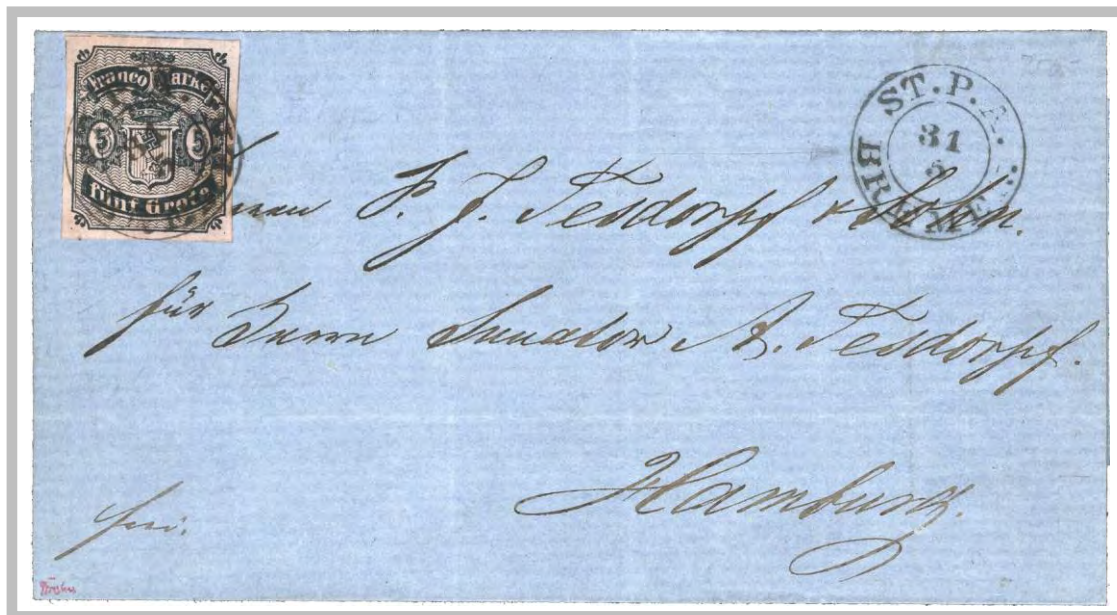 Franco Marke
5 5
fünf Grote
ST. P. A.
31
5
BREMEN
Herren P. J. Tesdorpf & Sohn.
für Herrn Senator A. Tesdorpf.
Hamburg.
frei.